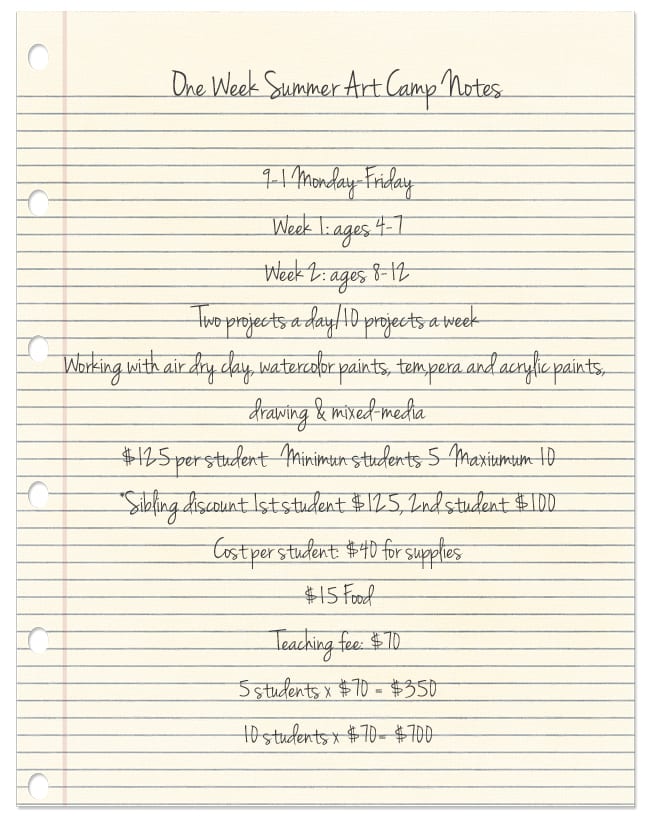 One Week Summer Art Camp Notes
9-1 Monday-Friday
Week 1: ages 4-7
Week 2: ages 8-12
Two projects a day/10 projects a week
Working with air dry clay, watercolor paints, tempera and acrylic paints,
drawing & mixed-media
$125 per student Minimun students 5 Maxiumum 10
*Sibling discount 1st student $125, 2nd student $100
Cost per student: $40 for supplies
$15 Food
Teaching fee: $70
5 students x $70 = $350
10 students x $70= $700